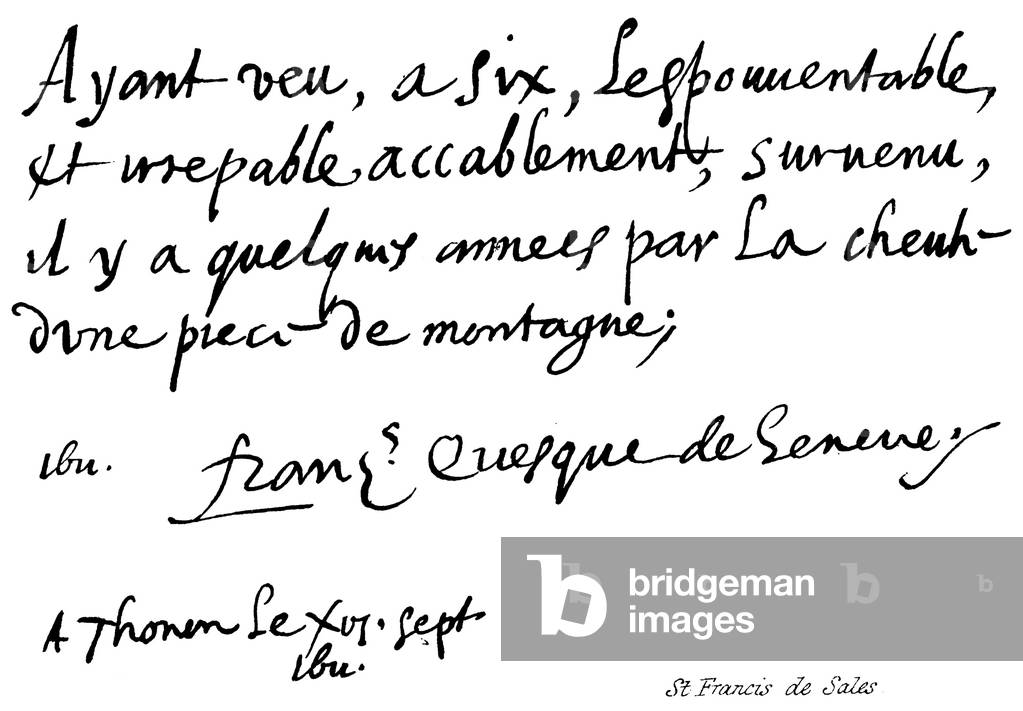 Ayant veu, a six, Lespouuentable,
et irrepable accablement, suruenu,
il y a quelques annees par La cheute
dune piece de montagne;
franç.s Euesque de Geneue.
A Thonon Le xvi. sept.
bridgeman
images
b
b
St Francis de Sales